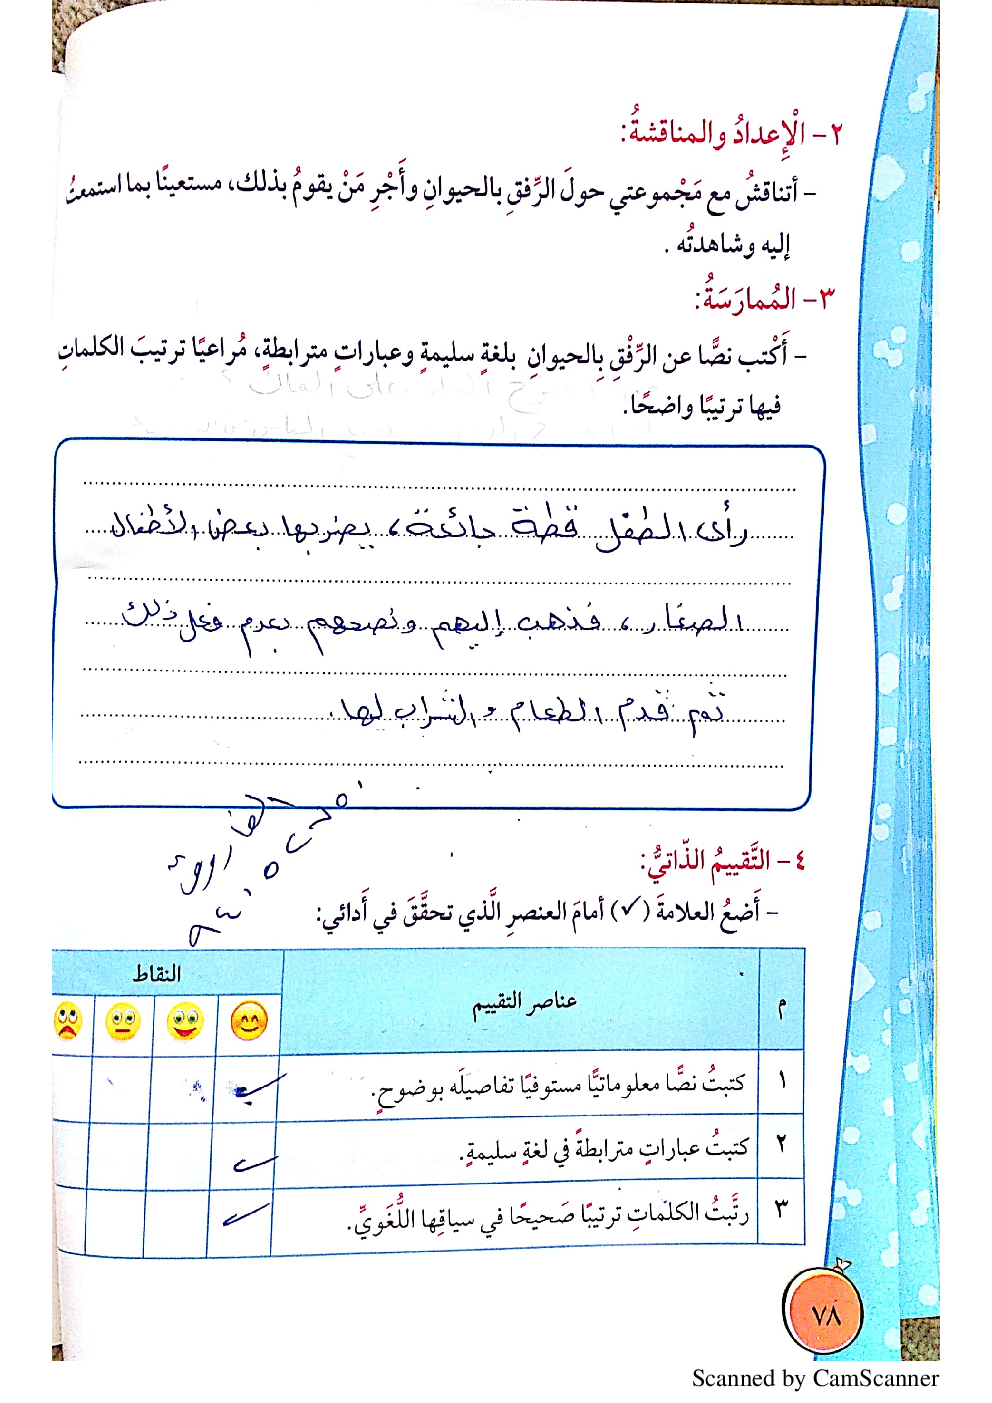 ٢- الْإِعدادُ والمناقشةُ:
- أتناقشُ مع مَجْموعتي حولَ الرِّفقِ بالحيوانِ وأَجْرِ مَنْ يقومُ بذلك، مستعينًا بما استمعتُ
إليه وشاهدتُه .
٣- المُمارَسَةُ:
- أَكْتب نصًّا عن الرِّفْقِ بِالحيوانِ بلغةٍ سليمةٍ وعباراتٍ مترابطةٍ، مُراعيًا ترتيبَ الكلماتِ
فيها ترتيبًا واضحًا.
رأى الطفل قطة جائعة، يضربها بعض الأطفال
الصغار، فذهب إليهم ونصحهم بعدم فعل ذلك
ثم قدم الطعام والشراب لها.
٤- التَّقييمُ الذّاتيُّ:
- أَضعُ العلامةَ (✓) أمامَ العنصرِ الَّذي تحقَّقَ في أدائي:
م عناصر التقييم النقاط
١ كتبتُ نصًّا معلوماتيًّا مستوفيًا تفاصيلَه بوضوحٍ. ✓
٢ كتبتُ عباراتٍ مترابطةً في لغةٍ سليمةٍ. ✓
٣ رتَّبتُ الكلماتِ ترتيبًا صَحيحًا في سياقِها اللُّغَويِّ. ✓
٧٨
Scanned by CamScanner